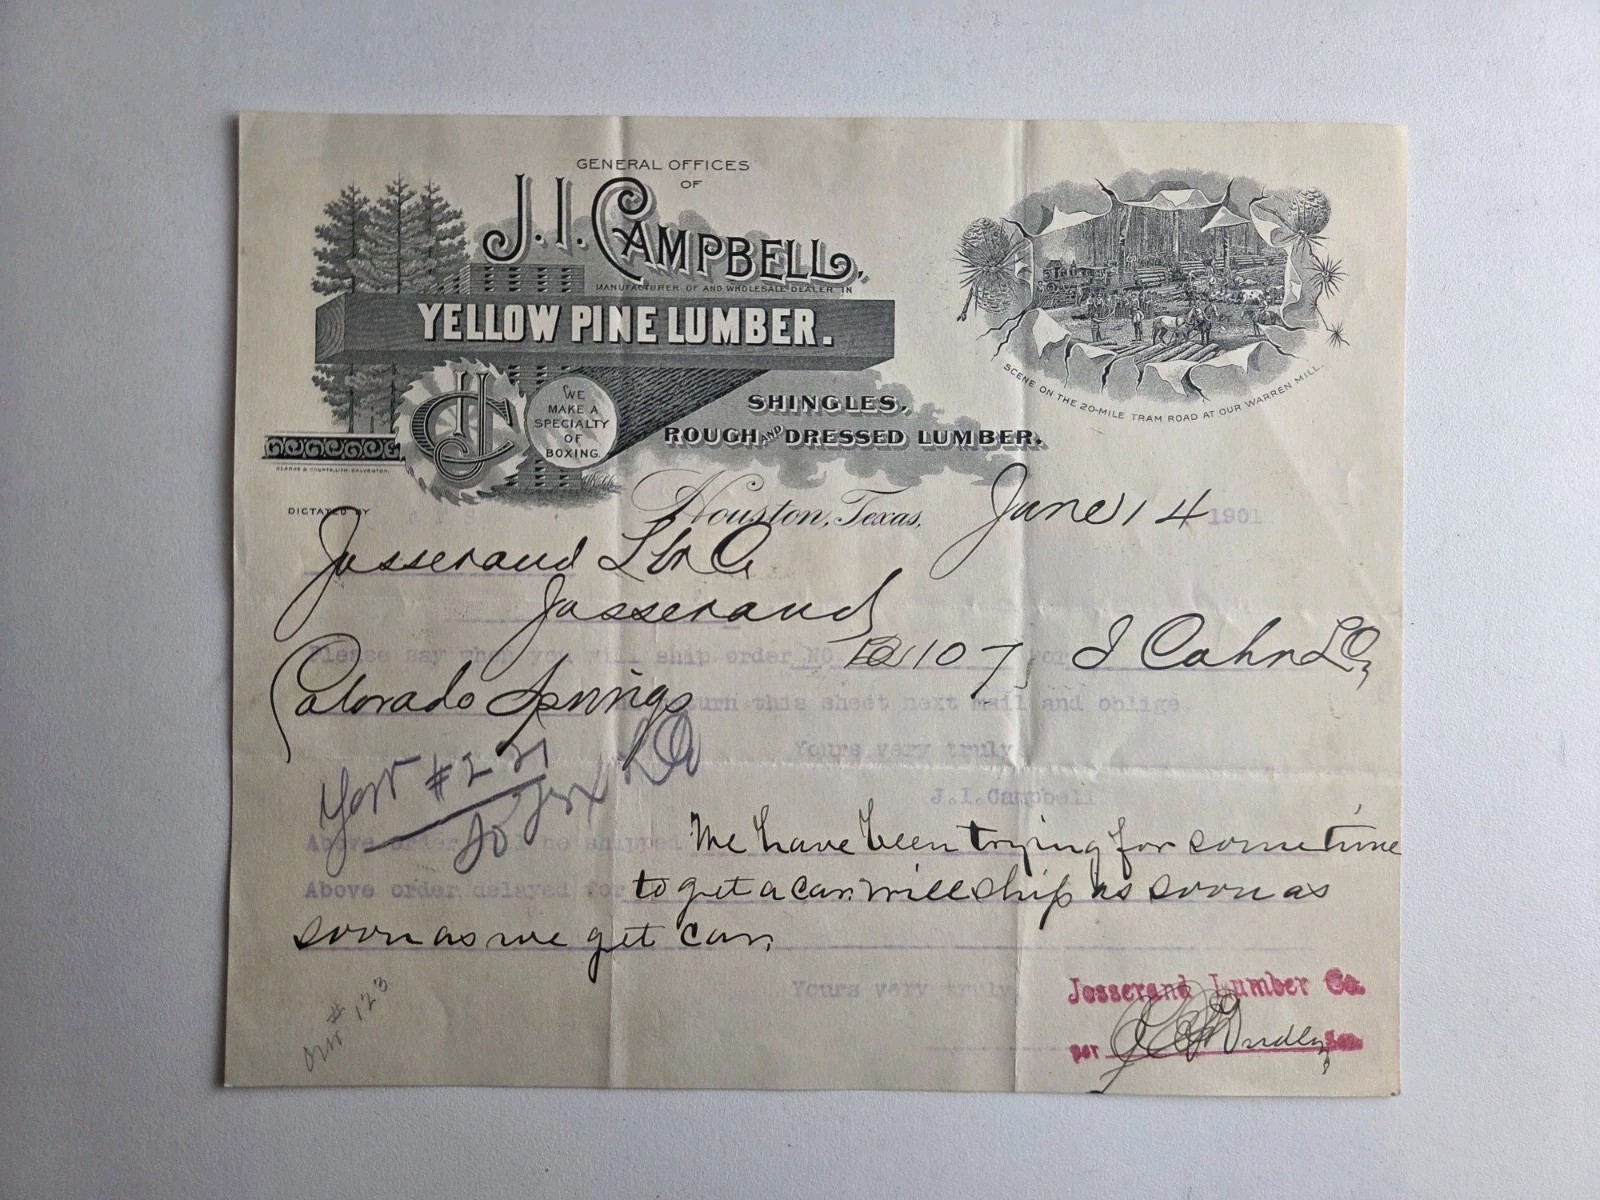 GENERAL OFFICES
OF
J. I. CAMPBELL,
MANUFACTURER OF AND WHOLESALE DEALER IN
YELLOW PINE LUMBER.
WE
MAKE A
SPECIALTY
OF
BOXING.
SHINGLES,
ROUGH AND DRESSED LUMBER.
SCENE ON THE 20-MILE TRAM ROAD AT OUR WARREN MILL.
DICTATED BY
Houston, Texas, June 14 1901
Josserand Lbr Co
Josserand
Please say when you will ship order NO 107 For I Cahn L Co
Colorado Springs turn this sheet next mail and oblige
Yours very truly
J.I.Campbell
Your # 221
Above order be shipped We have been trying for sometime
Above order delayed for to get a car. will ship as soon as
soon as we get car,
Yours very truly
our # 123
Josserand Lumber Co.
per